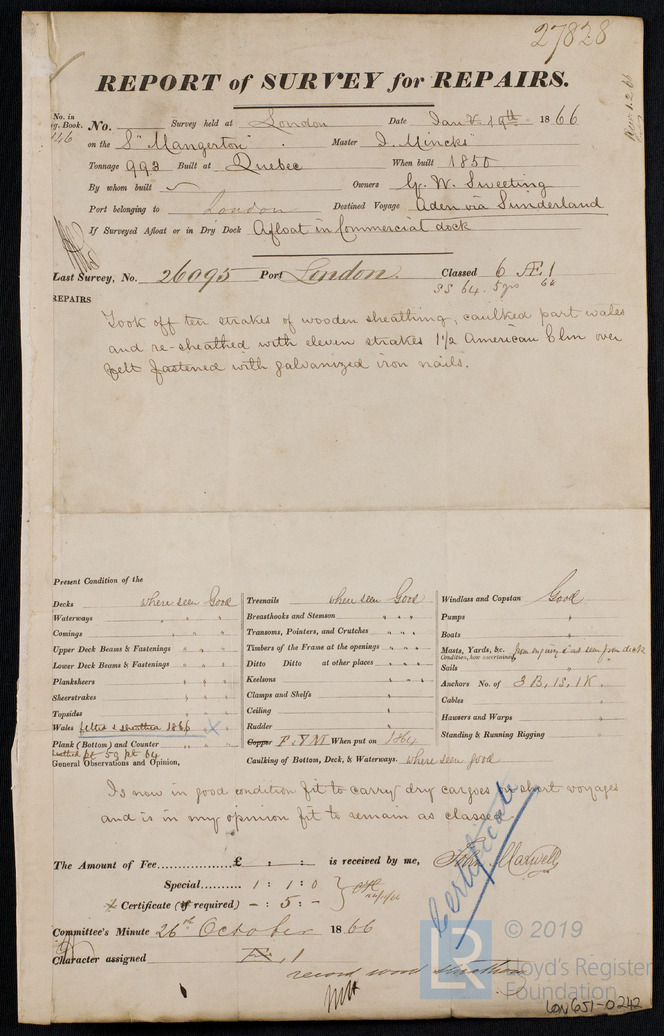 27828
REPORT of SURVEY for REPAIRS.
No. in
Reg. Book.
No. Survey held at London Date Jany 19th 1866
on the S "Mangerton" Master J. Mincks
Tonnage 993 Built at Quebec When built 1850
By whom built Owners G. W. Sweeting
Port belonging to London Destined Voyage Aden via Sunderland
If Surveyed Afloat or in Dry Dock Afloat in Commercial dock
Last Survey, No. 26095 Port London. Classed 6 Æ 1
SS 64. 5 yrs 64
REPAIRS
Took off ten strakes of wooden sheathing, caulked part wales
and re-sheathed with eleven strakes 1 1/2 American Elm over
felt fastened with galvanized iron nails.
Present Condition of the
Decks where seen Good
Waterways " " "
Comings " " "
Upper Deck Beams & Fastenings " " "
Lower Deck Beams & Fastenings " " "
Planksheers " " "
Sheerstrakes " " "
Topsides " " "
Wales felted & sheathed 1866 x
Plank (Bottom) and Counter " " "
pt 59 pt 64
General Observations and Opinion,
Treenails where seen Good
Breasthooks and Stemson " " "
Transoms, Pointers, and Crutches " " "
Timbers of the Frame at the openings " " "
Ditto Ditto at other places " " "
Keelsons " " "
Clamps and Shelfs " " "
Ceiling " " "
Rudder " " "
Copper F. & YM When put on 1864
Caulking of Bottom, Deck, & Waterways. where seen good
Windlass and Capstan Good
Pumps "
Boats "
Masts, Yards, &c. from inquiry & as seen from deck
Condition, how ascertained,
Sails "
Anchors No. of 3 B, 1S, 1K.
Cables "
Hawsers and Warps "
Standing & Running Rigging "
Is now in good condition fit to carry dry cargoes on short voyages
and is in my opinion fit to remain as classed
The Amount of Fee................£ : : is received by me, John Maxwell
Special.......... 1 : 1 : 0
Certificate (if required) - : 5 : -
Certificate
Committee's Minute 26th October 1866
Character assigned Æ 1
record wood sheathing
LR
© 2019
Lloyd's Register
Foundation
LON651-0242